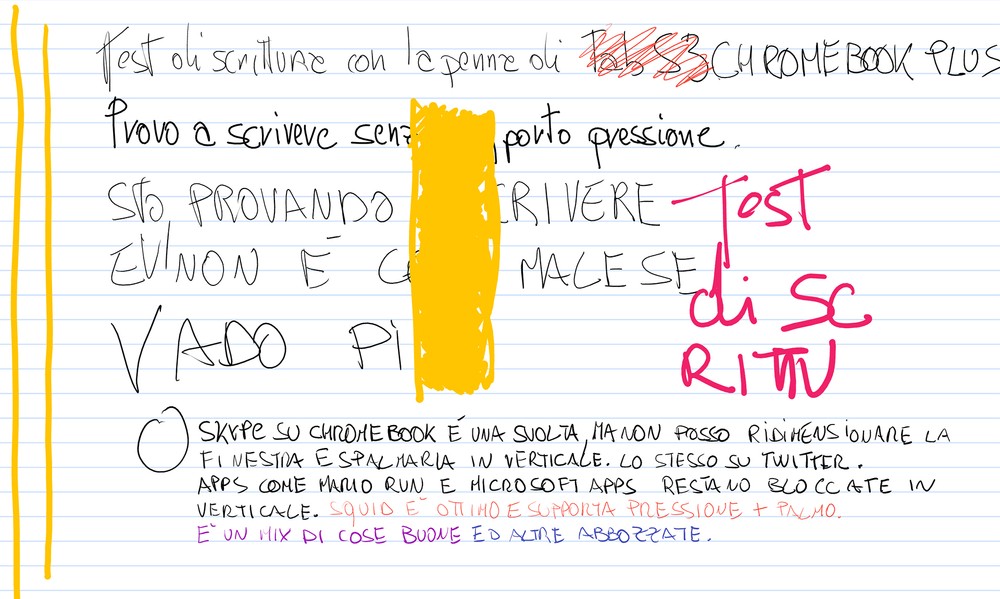 Test di scrittura con la penna di Tab S3 CHROMEBOOK PLUS
Provo a scrivere senz pporto pressione.
STO PROVANDO CRIVERE
E NON È MALE SE
VADO PI
Test
di SC
RITTU
SKYPE SU CHROMEBOOK É UNA SVOLTA, MA NON POSSO RIDIMENSIONARE LA
FINESTRA E SPALMARLA IN VERTICALE. LO STESSO SU TWITTER.
APPS COME MARIO RUN E MICROSOFT APPS RESTANO BLOCCATE IN
VERTICALE. SQUID E' OTTIMO E SUPPORTA PRESSIONE + PALMO.
E' UN MIX DI COSE BUONE ED ALTRE ABBOZZATE.